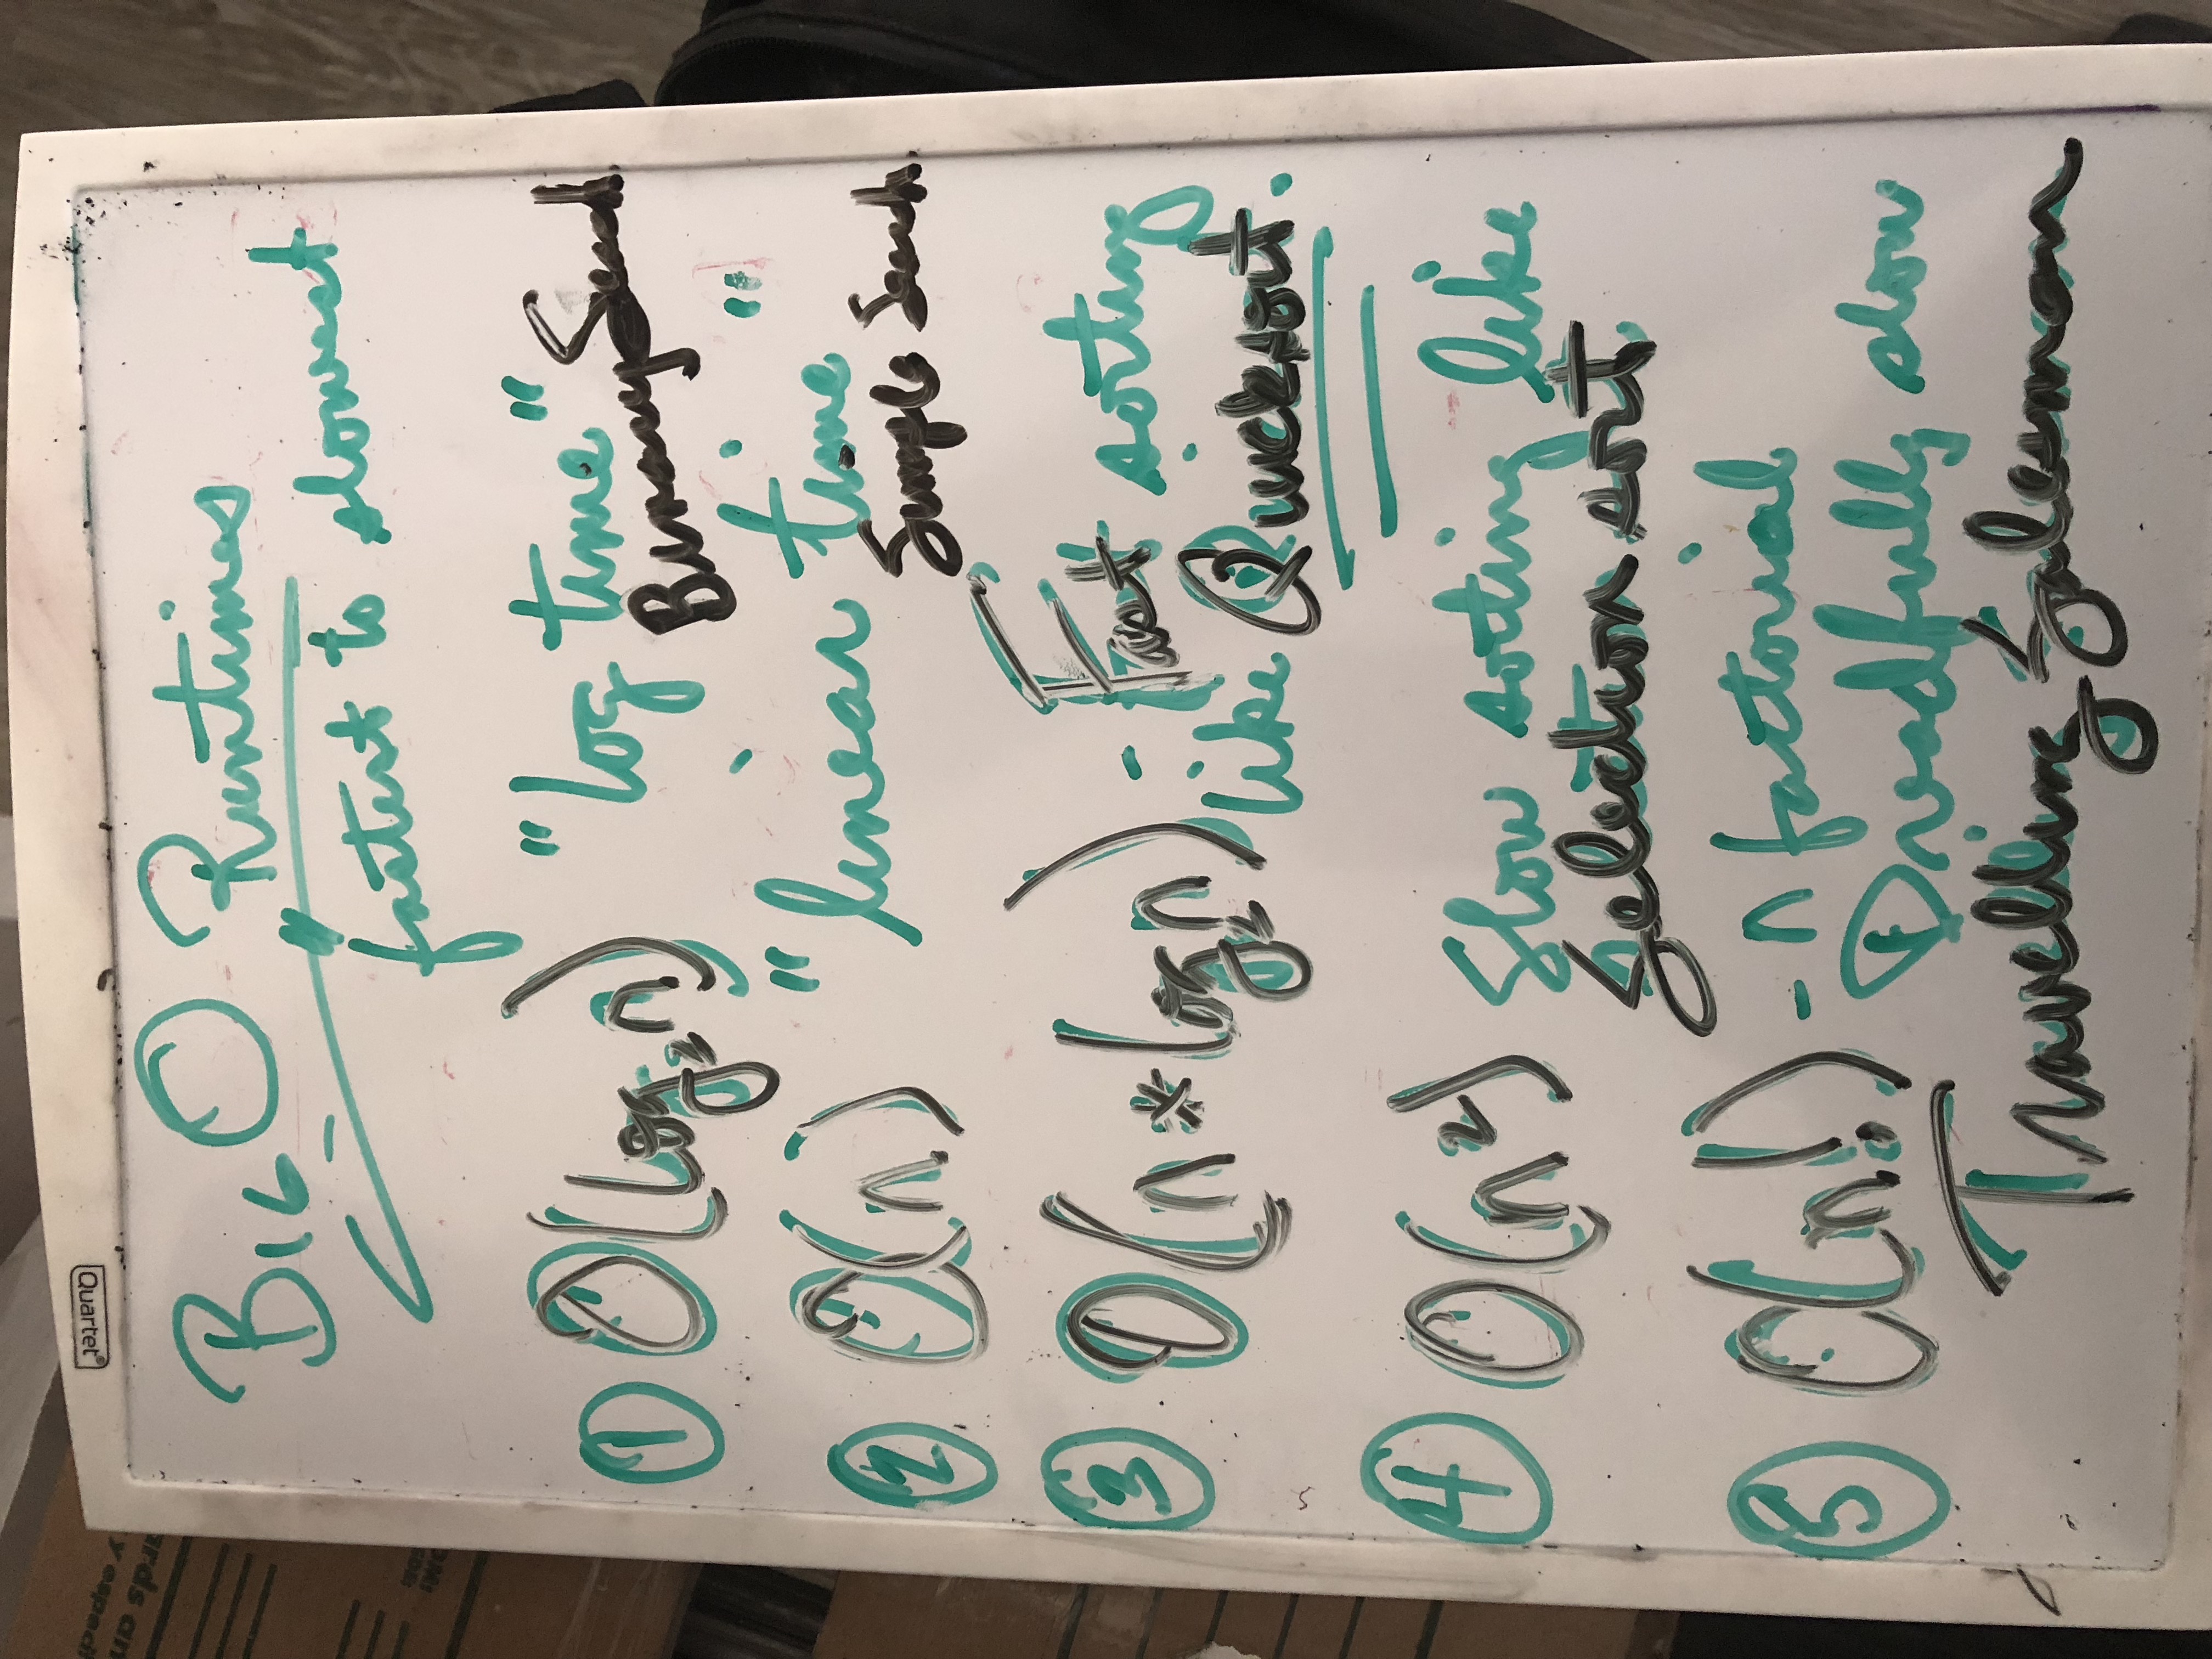 Quartet
BIG O Runtimes
"
fastest to slowest
① O(log₂n) "log time"
Binary Search
② O(n) "linear time"
Simple Search
③ O(n*log₂n) - Fast sorting
like Quicksort.
④ O(n²) Slow sorting like
Selection sort
⑤ O(n!) - n factorial
Dreadfully slow
Travelling Salesman